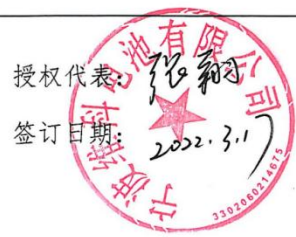 授权代表：张翔
签订日期：2022.3.17
宁波维科电池有限公司
3302060214675